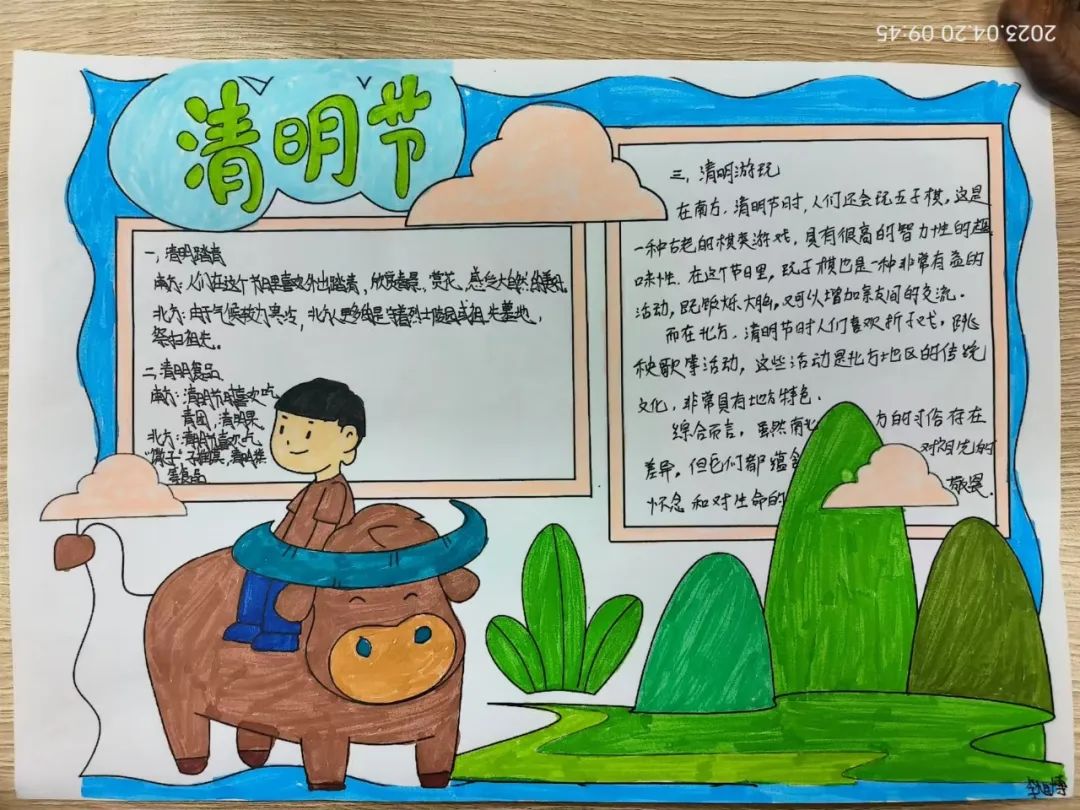 2023.04.20 09:45
清明节
一、清明踏青
南方：人们在这个节日里喜欢外出踏青，欣赏春景，赏花，感受大自然的美好。
北方：由于气候较为寒冷，北方人更多的是守着烈士陵园或祖先墓地，
祭扫祖先。
二、清明食品
南方：清明节时喜欢吃
青团，清明果
北方：清明节喜欢吃
"馓子"
等食品
三，清明游玩
在南方，清明节时，人们还会玩五子棋，这是
一种古老的棋类游戏，具有很高的智力性的趣
味性，在这个节日里，玩子棋也是一种非常有益的
活动，既锻炼大脑，又可以增加亲友间的交流。
而在北方，清明节时人们喜欢折子戏，跳
秧歌等活动，这些活动是北方地区的传统
文化，非常具有地方特色。
综合而言，虽然南北方的习俗存在
差异，但它们都蕴含对祖先的
怀念和对生命的敬畏.